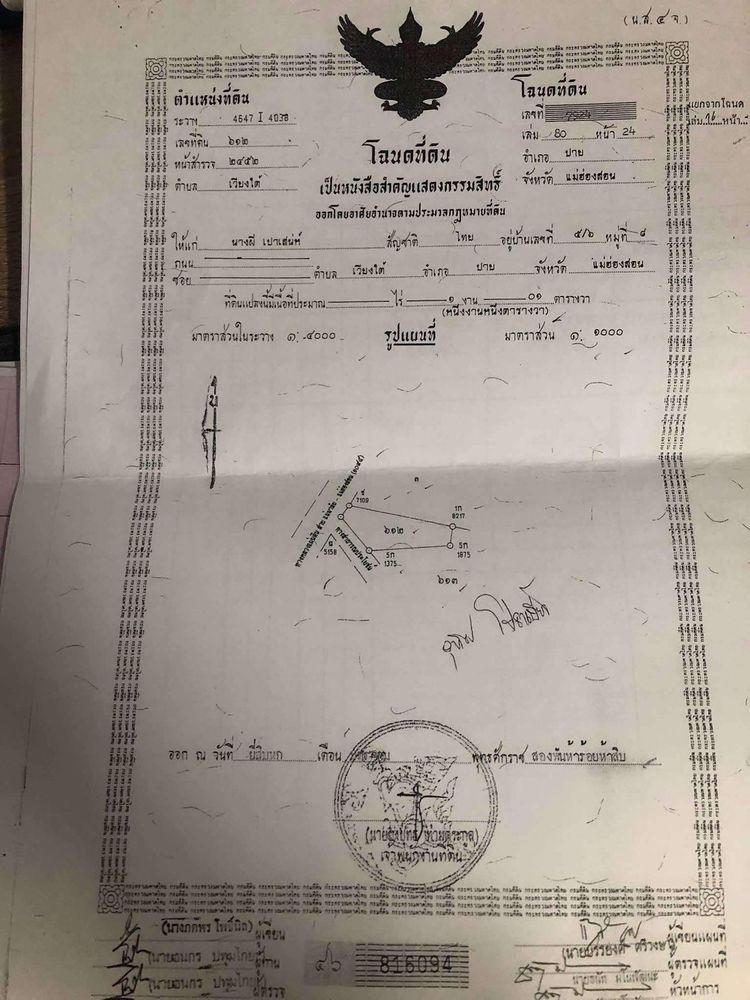 (น.ส.๔ จ.)
ตำแหน่งที่ดิน
ระวาง 4647 I 4038
เลขที่ดิน ๖๑๒
หน้าสำรวจ ๒๔๕๒
ตำบล เวียงใต้
โฉนดที่ดิน
เลขที่ 7924
เล่ม 80 หน้า 24
อำเภอ ปาย
จังหวัด แม่ฮ่องสอน
แยกจากโฉนด
โฉนดที่ดิน
เป็นหนังสือสำคัญแสดงกรรมสิทธิ์
ออกโดยอาศัยอำนาจตามประมวลกฎหมายที่ดิน
ให้แก่ นางผี เปาเสน่ห์ สัญชาติ ไทย อยู่บ้านเลขที่ ๕/๖ หมู่ที่ ๘
ถนน
ซอย ตำบล เวียงใต้ อำเภอ ปาย จังหวัด แม่ฮ่องสอน
ที่ดินแปลงนี้มีเนื้อที่ประมาณ ไร่ ๑ งาน ๐๑ ตารางวา
(หนึ่งงานหนึ่งตารางวา)
มาตราส่วนในระวาง ๑:๔๐๐๐ รูปแผนที่ มาตราส่วน ๑: ๑๐๐๐
น
7109
๑
1ก
8217
๖๑๒
5158
5ก
1375
5ก
1875
ทางสาธารณประโยชน์
๖๑๓
ออก ณ วันที่ ยี่สิบหก เดือน พุทธศักราช สองพันห้าร้อยห้าสิบ
เจ้าพนักงานที่ดิน
ผู้เขียน
ผู้เขียนแผนที่
ผู้ตรวจแผนที่
ผู้ตรวจ
หัวหน้าการ
816094